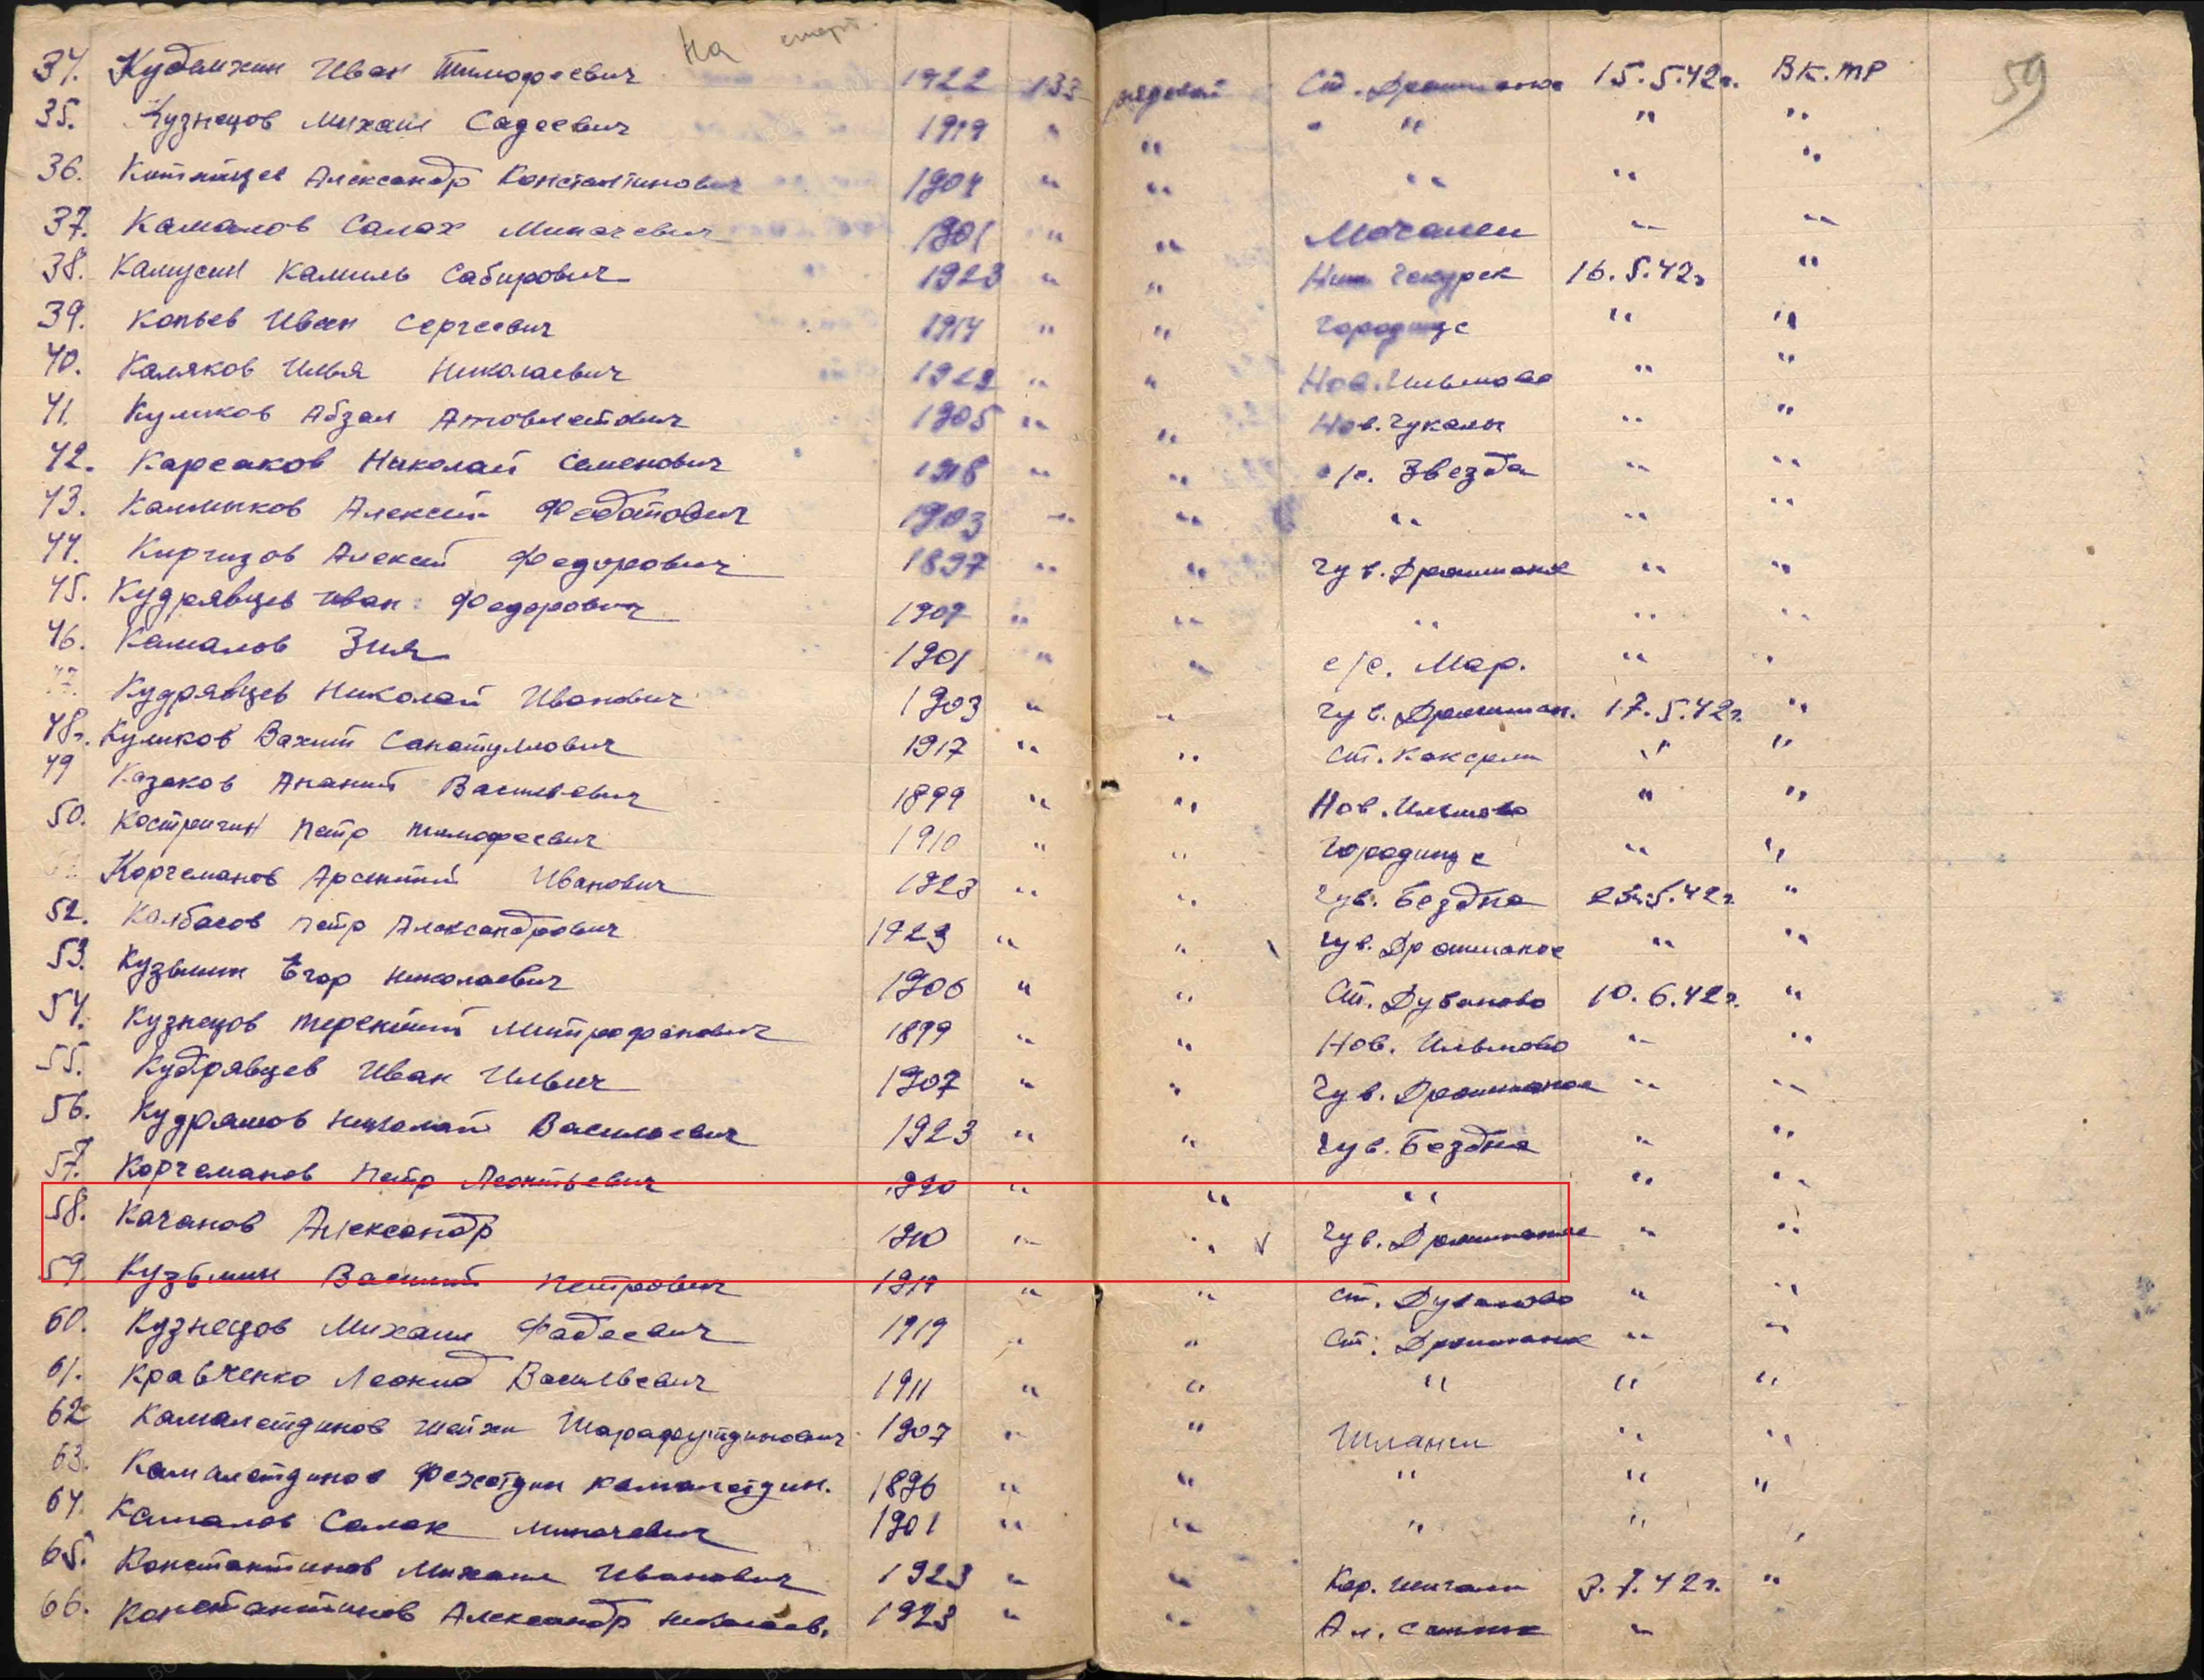 На
59
34. Кудамкин Иван Тимофеевич 1922 133 рядовой Ст. Дрожжаное 15.5.42г. ВК. ТР
35. Кузнецов Михаил Садеевич 1919 " " " " "
36. Александр Константинович 1904 " " " " "
37. Камалов Салах Миначевич 1901 " " Мочалеи " "
38. Камусин Камиль Сабирович 1923 " " Ниж. Чекурск 16.5.42г "
39. Копьев Иван Сергеевич 1914 " " Городище " "
40. Каляков Илья Николаевич " " Нов. Ильмово " "
41. Куликов Абзал 1905 " " Нов. Чукалы " "
42. Карсаков Николай Семенович 1918 " " с/с. Звезда " "
43. Калмыков Алексей Федотович 1903 " " " " "
44. Киргизов Алексей Федорович 1897 " " Чув. Дрожжаное " "
45. Кудрявцев Иван Федорович 1907 " " " " "
46. Камалов Зия 1901 " " с/с. Мар. " "
47. Кудрявцев Николай Иванович 1903 " " Чув. Дрожжан. 17.5.42г. "
48. Куликов Вахит Санатуллович 1917 " " Ст. Какерли " "
49 Казаков Ананий Васильевич 1899 " " Нов. Ильмово " "
50. Костригин Петр Тимофеевич 1910 " " Городище " "
Корчеманов Арсентий Иванович 1923 " " Чув. Бездна 25.5.42г. "
52. Колбасов Петр Александрович 1923 " " Чув. Дрожжаное " "
53. Кузьмин Егор Николаевич 1906 " " Ст. Дуваново 10.6.42г. "
54. Кузнецов Терентий Митрофанович 1899 " " Нов. Ильмово " "
55. Кудрявцев Иван Ильич 1907 " " Чув. Дрожжаное " "
56. Кудряшов Николай Васильевич 1923 " " Чув. Бездна " "
57. Корчеманов Петр Леонтьевич " " " " "
58. Качанов Александр 1910 " " √ Чув. Дрожжаное " "
59. Кузьмин Василий Петрович " " Ст. Дуваново " "
60. Кузнецов Михаил Фадеевич 1919 " " Ст. Дрожжаное " "
61. Кравченко Леонид Васильевич 1911 " " " " "
62 Камалетдинов Шейхи Шарафутдинович 1907 " " Шланги " "
63. Камалетдинов Фахетдин Камалетдин. 1896 " " " " "
64. Камалов Салах Миначевич 1901 " " " " "
65. Константинов Михаил Иванович 1923 " " Кар. Шигали 3.7.42г. "
66. Константинов Александр Николаев. 1923 " " "